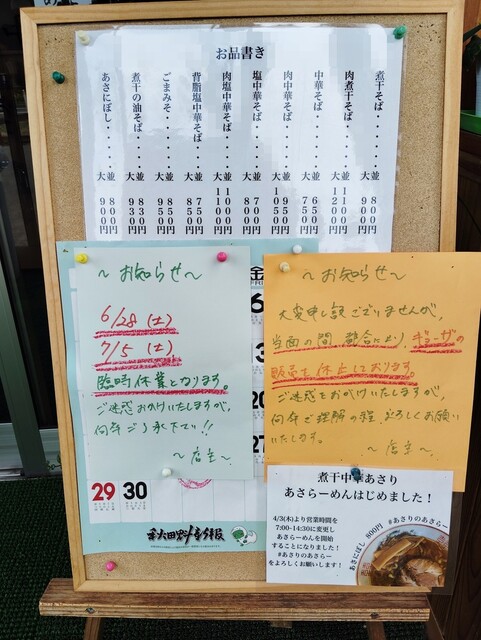 お品書き
煮干そば・・・・・・並 800円
大 900円
肉煮干そば・・・・・並 1100円
大 1200円
中華そば・・・・・・並 650円
大 750円
肉中華そば・・・・・並 950円
大 1050円
塩中華そば・・・・・並 700円
大 800円
肉塩中華そば・・・・並 1000円
大 1100円
背脂塩中華そば・・・並 750円
大 850円
ごまみそ・・・・・・並 850円
大 950円
煮干の油そば・・・・並 830円
大 930円
あさにぼし・・・・・並 800円
大 900円
〜お知らせ〜
6/28(土)
7/5(土)
臨時休業となります。
ご迷惑おかけいたしますが、
何卒ご了承下さい!!
〜店主〜
金
6
20
27
29 30
〜お知らせ〜
大変申し訳ございませんが、
当面の間 都合により、ギョーザの
販売を休止しております。
ご迷惑をおかけいたしますが、
何卒ご理解の程、よろしくお願い
いたします。
〜店主〜
煮干中華あさり
あさらーめんはじめました!
4/3(木)より営業時間を
7:00-14:30に変更し
あさらーめんを開始
することになりました!
#あさりのあさらー
をよろしくお願いします!
あさにぼし 800円 #あさりのあさらー